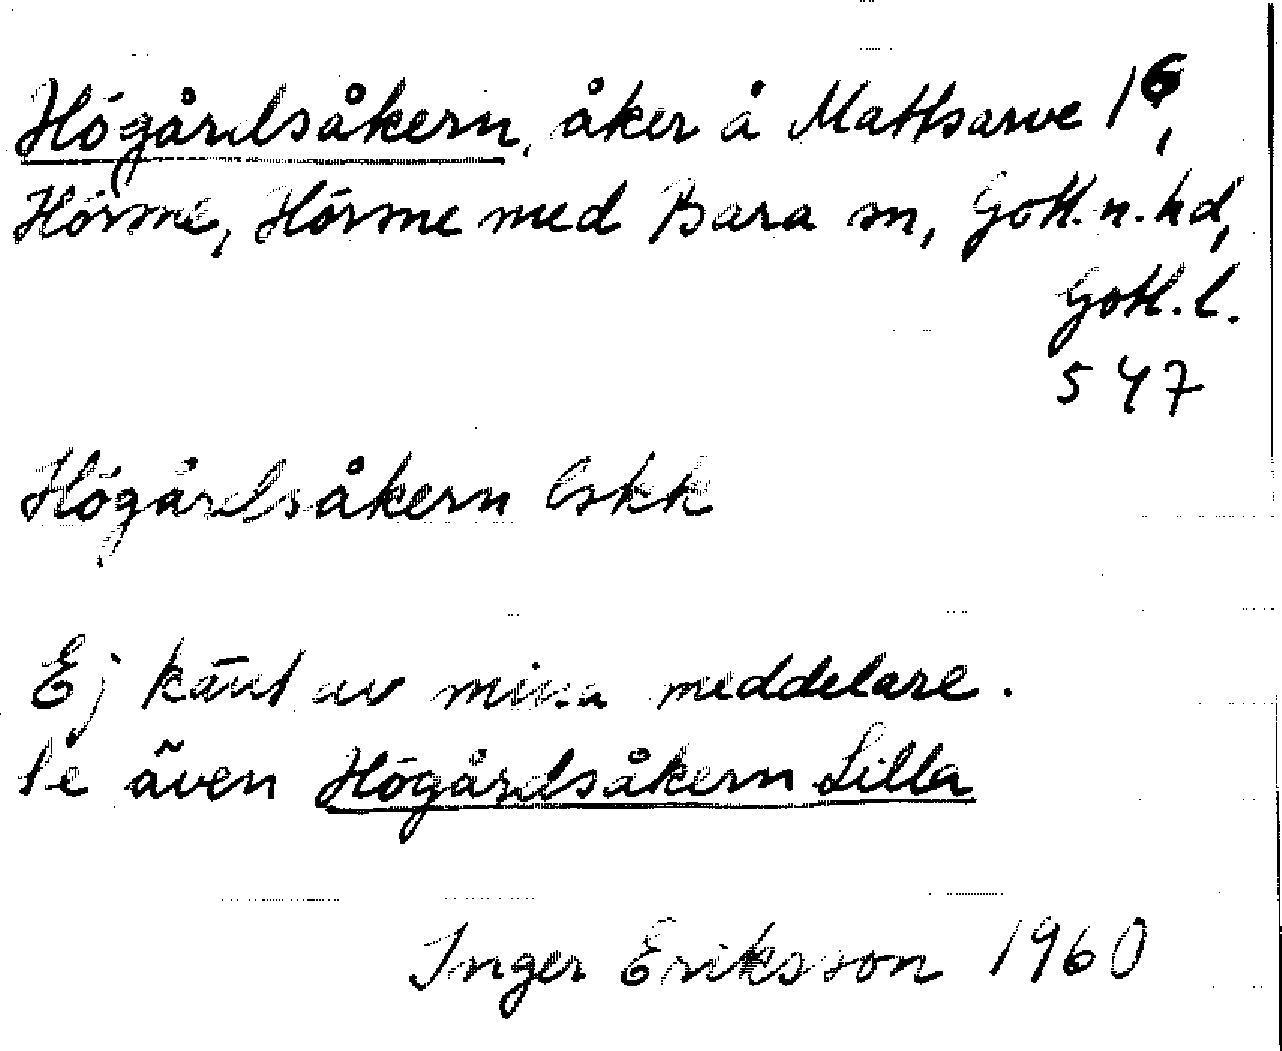 Högårdsåkern, åker å Mattsarve 1⁶,
Hörsne, Hörsne med Bara sn, Gotl. n. hd,
Gotl. l.
5 47
Högårdsåkern Eskk
Ej känt av mina meddelare.
Se även Högårdsåkern Lilla
Inger Eriksson 1960